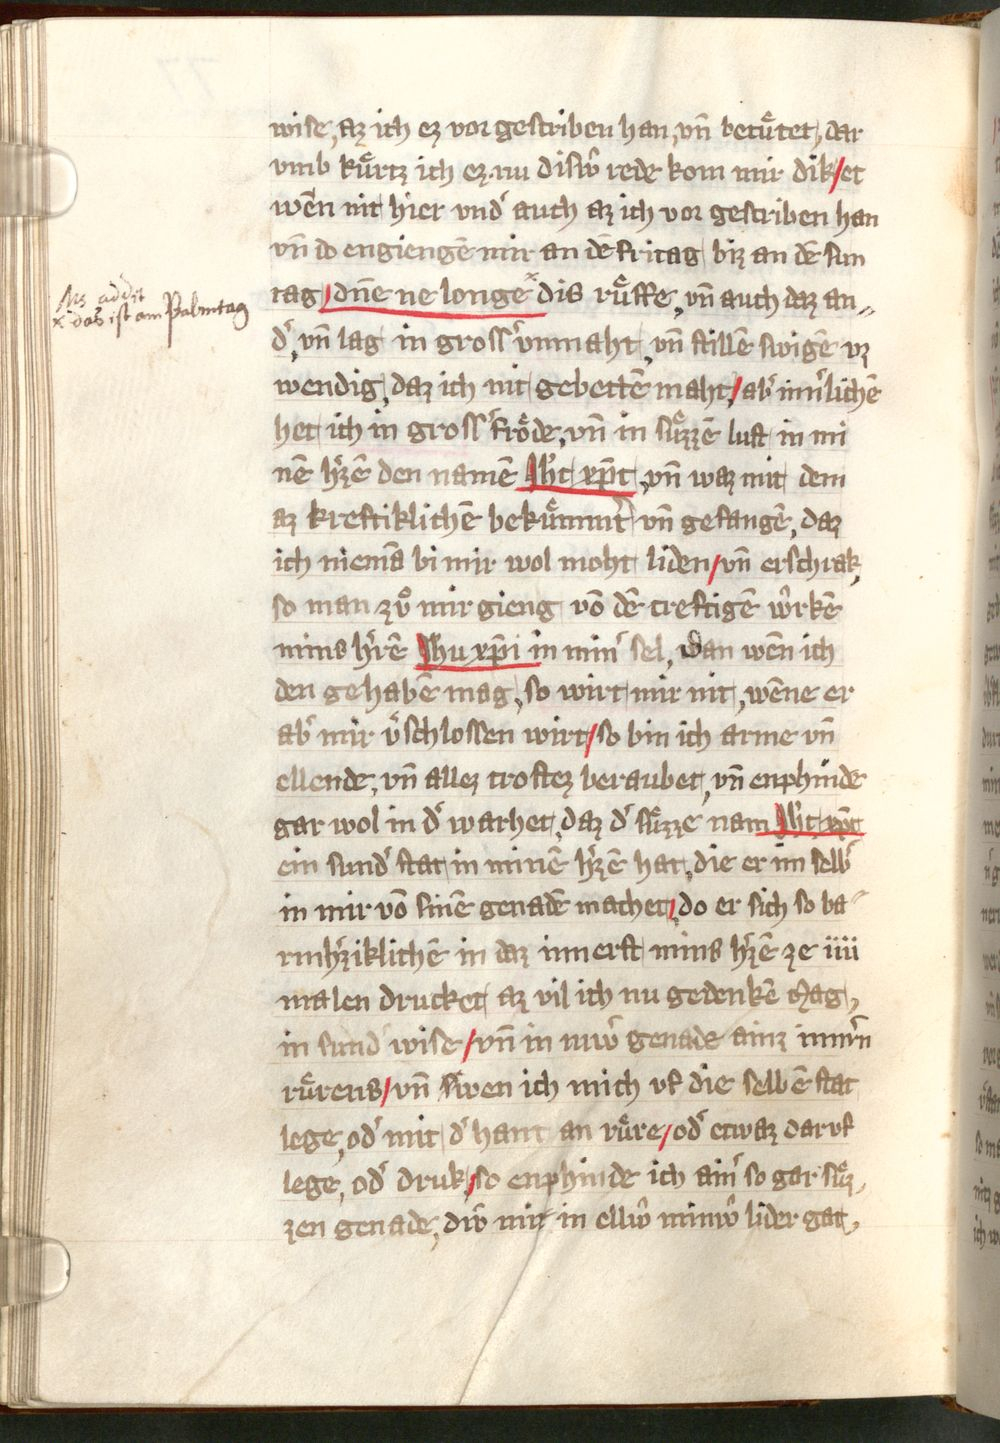 wise, az ich ez vor gescriben han, vn̄ betu̍tet, dar
vmb ku̍rtz ich ez nu disiv̍ rede kom mir dik/et
wēn nit hier vnd͛ auch az ich vor gescriben han
vn̄ do engiengē mir an dē fritag biz an dē sun
tag/ dn̄e ne longe x dis ru̍ffe, vn̄ auch daz an„
d͛, vn̄ lag in gross͛ vnmaht, vn̄ stillē swigē vz
wendig, daz ich nit gebettē maht,/ ab͛ inn͛lichē
het ich in gross͛ fro̍de, vn̄ in su̍zzē lust in mi
nē h͛zē den namē Jh̄c xp̄c, vn̄ waz mit dem
az kreftiklichē beku̍mmt͛ vn̄ gefangē, daz
ich niemā bi mir wol moht liden/ vn̄ erschrak,
so man zuͦ mir gieng vō dē creftigē wu̍rkē
mins h͛rē Jhu xp̄i in min͛ sel, Dan wēn ich
den gehabē mag, so wirt mir nit, wēne er
ab͛ mir v͛schlossen wirt/ so bin ich arme vn̄
ellende, vn̄ allez trostez beraubet, vn̄ enphinde
gar wol in d͛ warhet, daz d͛ su̍zze nam Jh̄c xp̄c
ein sund͛ stat in minē h͛zē hat, die er im selb͛
in mir vō sinē genadē machet, do er sich so ba„
rmh͛ziklichē in daz innerst mins h͛zē ze iiii
malen drucket az vil ich nu gedenkē mag,
in sund͛ wise/ vn̄ in niw͛ genade ainz inn͛rn
ru̍rens/ vn̄ swen ich mich vf die selbē stat
lege, od͛ mit d͛ hant an ru̍re/ od͛ etwaz darvf
lege, od͛ druk,/ so enphinde ich ain͛ so gar su̍z,
zen genade, div̍ mir in elliv̍ miniv̍ lider gat,
Ms addit
x das ist am Palmtag